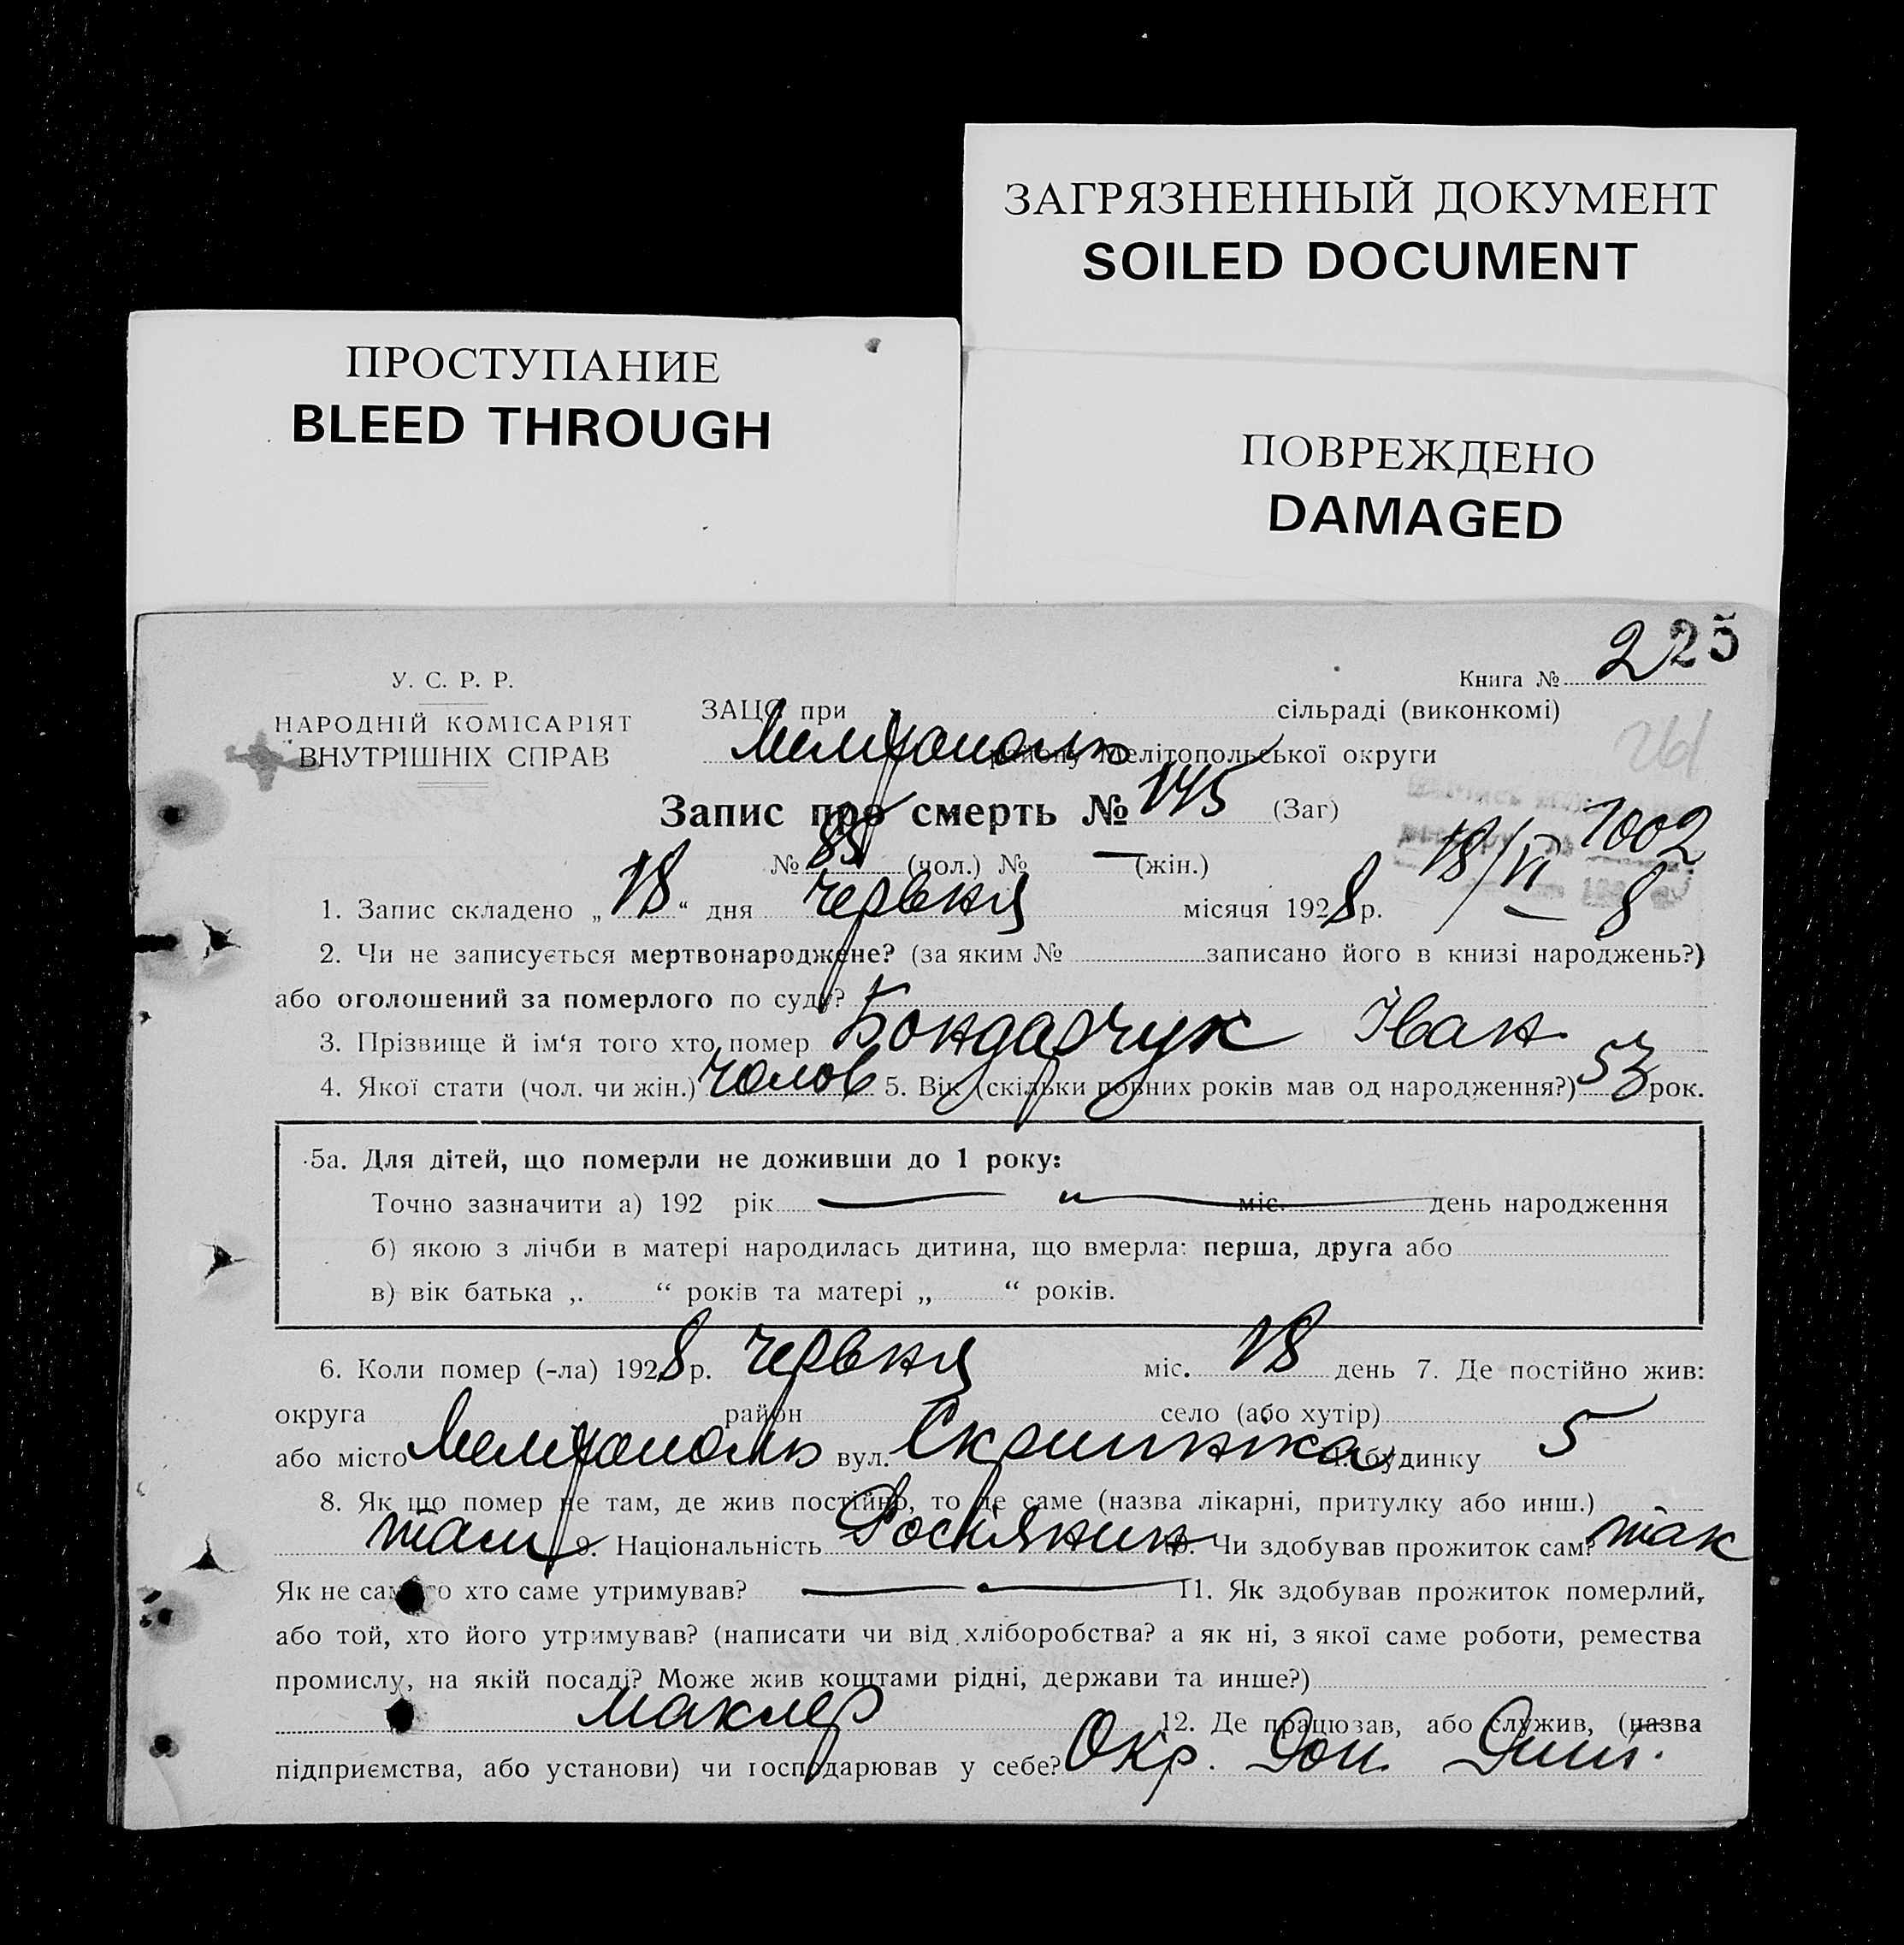 ЗАГРЯЗНЕННЫЙ ДОКУМЕНТ
SOILED DOCUMENT
ПРОСТУПАНИЕ
BLEED THROUGH
ПОВРЕЖДЕНО
DAMAGED
225
Книга №
У. С. Р. Р.
НАРОДНІЙ КОМІСАРІЯТ
ВНУТРІШНІХ СПРАВ
ЗАЦС при сільраді (виконкомі)
Мелітополь району Мелітопольської округи
261
Запис про смерть № 145 (Заг)
1002
№ 85 (чол.) № — (жін.)
18/VI 8
1. Запис складено „18“ дня червня місяця 1928 р.
2. Чи не записується мертвонароджене? (за яким № записано його в книзі народжень?)
або оголошений за померлого по суду?
3. Прізвище й ім‘я того хто помер Бондарчук Іван
4. Якої стати (чол. чи жін.) чолов 5. Вік (скільки повних років мав од народження?) 53 рок.
5а. Для дітей, що померли не доживши до 1 року:
Точно зазначити а) 192 рік — міс. — день народження
б) якою з лічби в матері народилась дитина, що вмерла: перша, друга або
в) вік батька „ “ років та матері „ “ років.
6. Коли помер (-ла) 1928 р. червня міс. 18 день 7. Де постійно жив:
округа район село (або хутір)
або місто Мелітополь вул. будинку 5
8. Як що помер не там, де жив постійно, то де саме (назва лікарні, притулку або инш.)
там 9. Національність Росіянин 10. Чи здобував прожиток сам? так
Як не сам то хто саме утримував? — 11. Як здобував прожиток померлий,
або той, хто його утримував? (написати чи від хліборобства? а як ні, з якої саме роботи, ремества
промислу, на якій посаді? Може жив коштами рідні, держави та инше?)
маклер 12. Де працював, або служив, (назва
підприємства, або установи) чи господарював у себе? Окр.